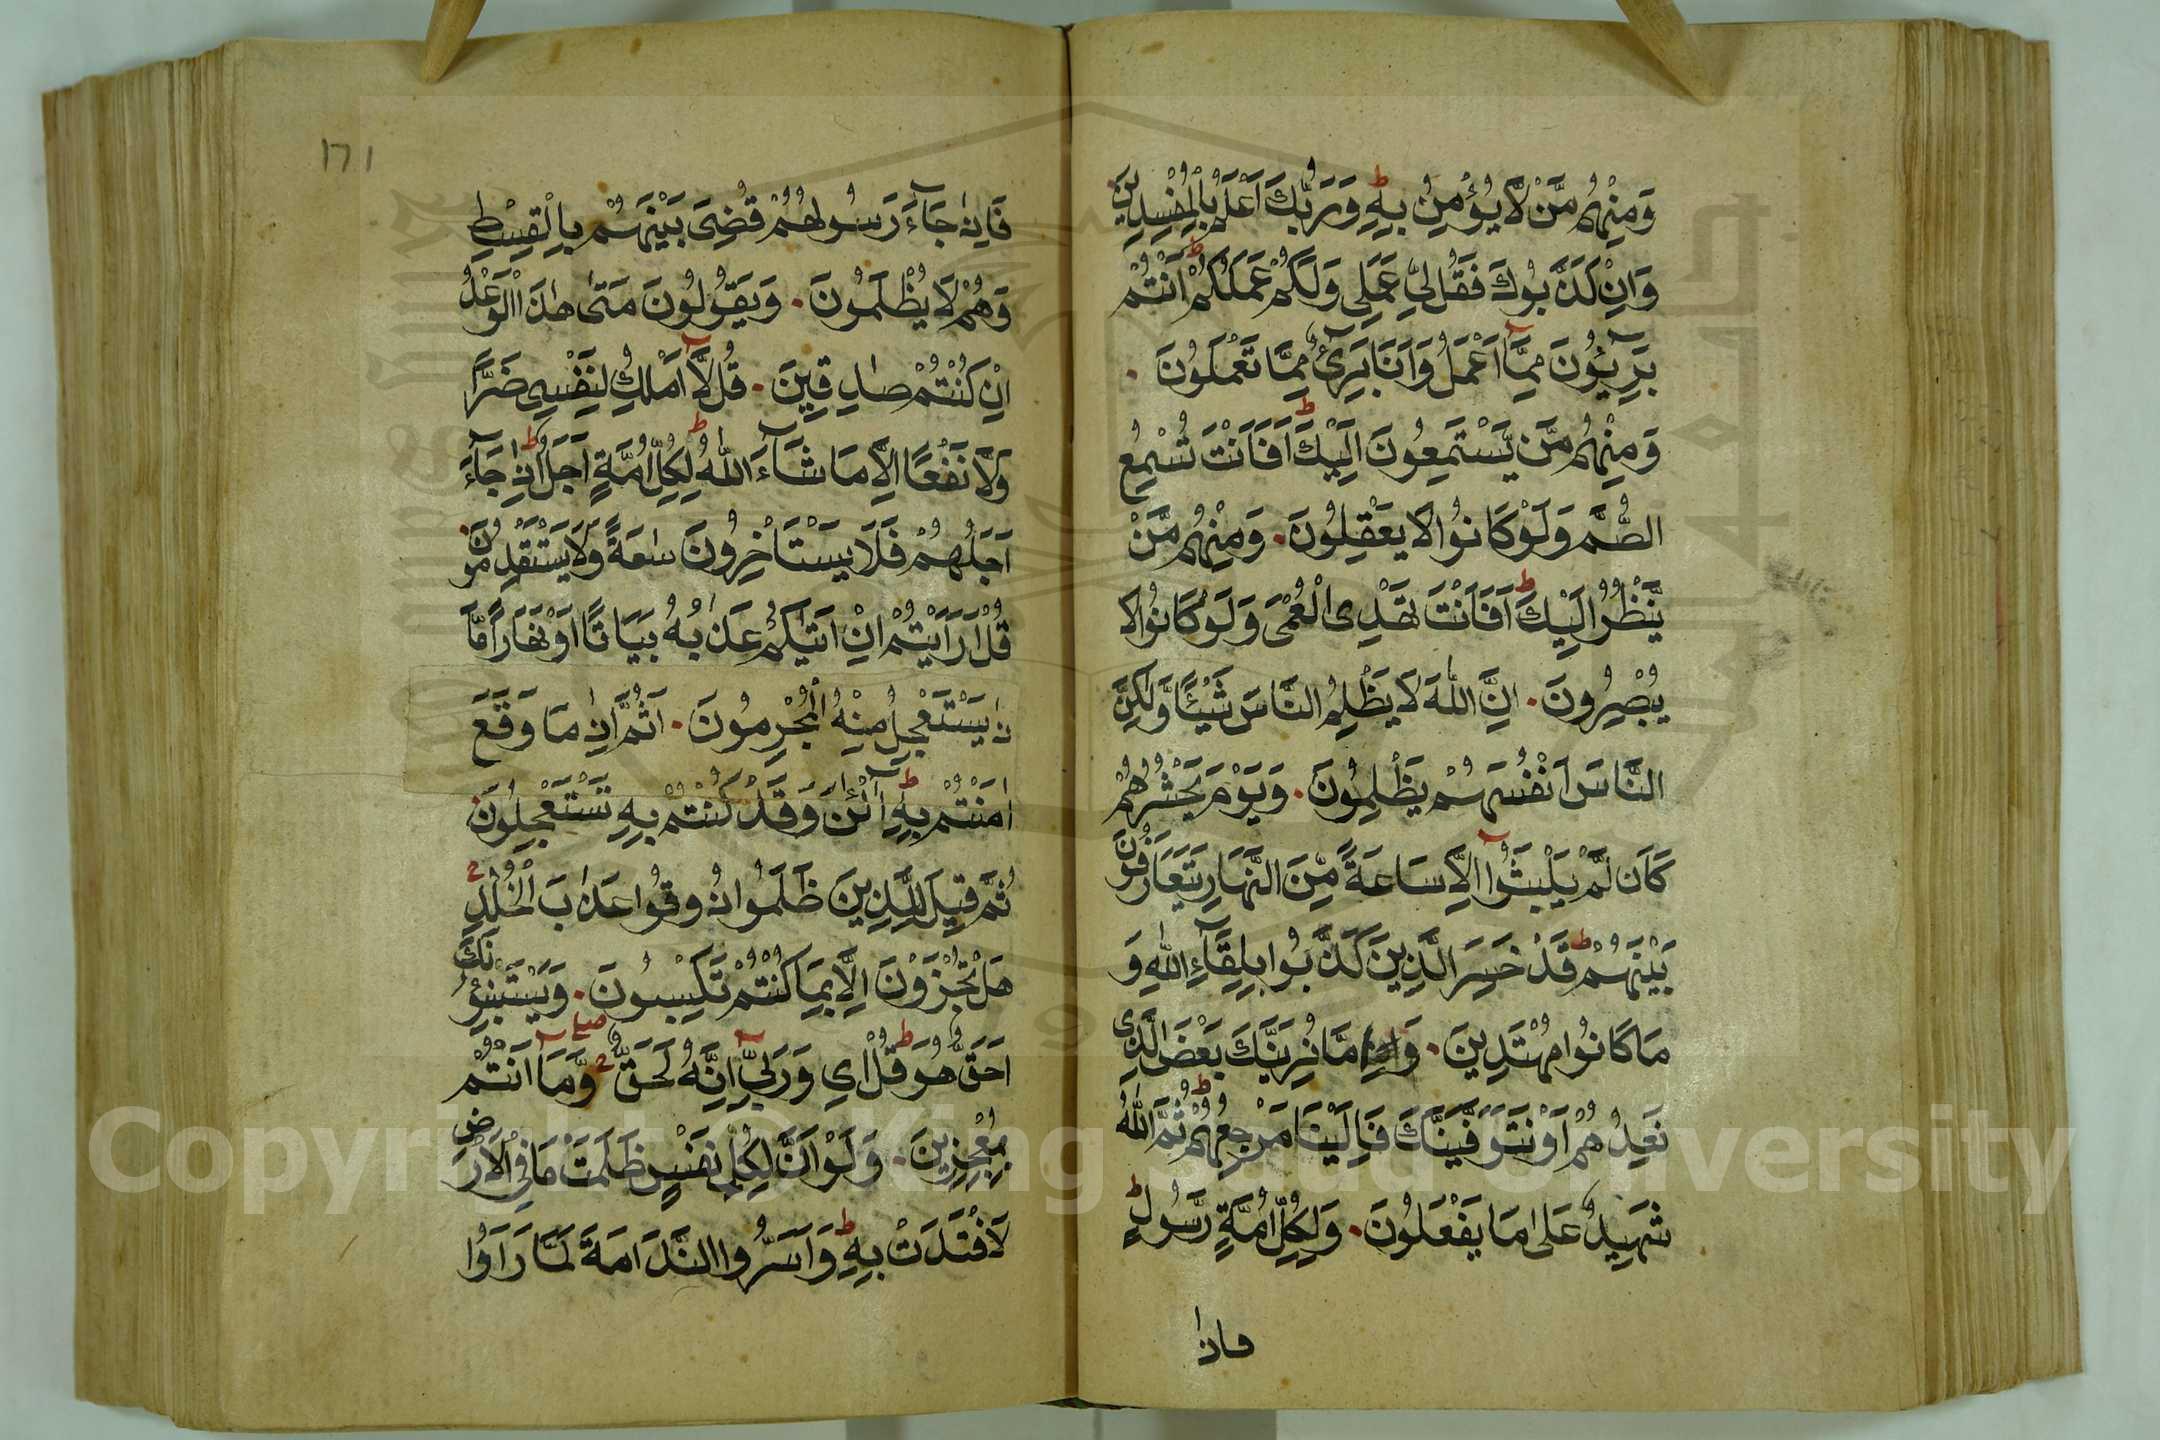 وَمِنْهُم مَّنْ لَا يُؤْمِنُ بِهِ ط وَرَبُّكَ اَعْلَمُ بِالْمُفْسِدِينَ
وَاِنْ كَذَّبُوكَ فَقُل لِي عَمَلِي وَلَكُمْ عَمَلُكُمْ ط اَنْتُمْ
بَرِيئُونَ مِمَّا اَعْمَلُ وَاَنَا بَرِيءٌ مِمَّا تَعْمَلُونَ .
وَمِنْهُم مَّن يَسْتَمِعُونَ اِلَيْكَ ط اَفَاَنْتَ تُسْمِعُ
الصُّمَّ وَلَوْ كَانُوا لَا يَعْقِلُونَ . وَمِنْهُم مَّنْ
يَّنْظُرُ اِلَيْكَ ط اَفَاَنْتَ تَهْدِى الْعُمْىَ وَلَوْ كَانُوا لَا
يُبْصِرُونَ . اِنَّ اللّٰهَ لَا يَظْلِمُ النَّاسَ شَيْئًا وَّلٰكِنَّ
النَّاسَ اَنْفُسَهُمْ يَظْلِمُونَ . وَيَوْمَ يَحْشُرُهُمْ
كَاَن لَّمْ يَلْبَثُوا اِلَّا سَاعَةً مِّنَ النَّهَارِ يَتَعَارَفُونَ
بَيْنَهُمْ ط قَدْ خَسِرَ الَّذِينَ كَذَّبُوا بِلِقَاءِ اللّٰهِ وَ
مَا كَانُوا مُهْتَدِينَ . وَاِمَّا نُرِيَنَّكَ بَعْضَ الَّذِى
نَعِدُهُمْ اَوْ نَتَوَفَّيَنَّكَ فَاِلَيْنَا مَرْجِعُهُمْ ط ثُمَّ اللّٰهُ
شَهِيدٌ عَلٰى مَا يَفْعَلُونَ . وَلِكُلِّ اُمَّةٍ رَّسُولٌ ط
فاذا
١٦١
فَاِذَا جَاءَ رَسُولُهُمْ قُضِىَ بَيْنَهُمْ بِالْقِسْطِ
وَهُمْ لَا يُظْلَمُونَ . وَيَقُولُونَ مَتٰى هٰذَا الْوَعْدُ
اِنْ كُنْتُمْ صَادِقِينَ . قُل لَّا اَمْلِكُ لِنَفْسِى ضَرًّا
وَلَا نَفْعًا اِلَّا مَا شَاءَ اللّٰهُ ط لِكُلِّ اُمَّةٍ اَجَلٌ ط اِذَا جَاءَ
اَجَلُهُمْ فَلَا يَسْتَاْخِرُونَ سَاعَةً وَلَا يَسْتَقْدِمُونَ .
قُلْ اَرَاَيْتُمْ اِنْ اَتٰيكُمْ عَذَابُهُ بَيَاتًا اَوْ نَهَارًا مَّا
ذَا يَسْتَعْجِلُ مِنْهُ الْمُجْرِمُونَ . اَثُمَّ اِذَا مَا وَقَعَ
اٰمَنْتُمْ بِهِ ط آلْئٰنَ وَقَدْ كُنْتُمْ بِهِ تَسْتَعْجِلُونَ .
ثُمَّ قِيلَ لِلَّذِينَ ظَلَمُوا ذُوقُوا عَذَابَ الْخُلْدِ
هَلْ تُجْزَوْنَ اِلَّا بِمَا كُنْتُمْ تَكْسِبُونَ . وَيَسْتَنْبِؤُنَكَ
اَحَقٌّ هُوَ ط قُلْ اِي وَرَبِّي اِنَّهُ لَحَقٌّ وَّمَا اَنْتُمْ
بِمُعْجِزِينَ . وَلَوْ اَنَّ لِكُلِّ نَفْسٍ ظَلَمَتْ مَا فِي الْاَرْضِ
لَافْتَدَتْ بِهِ ط وَاَسَرُّوا النَّدَامَةَ لَمَّا رَاَوُا
Copyright © King Saud University